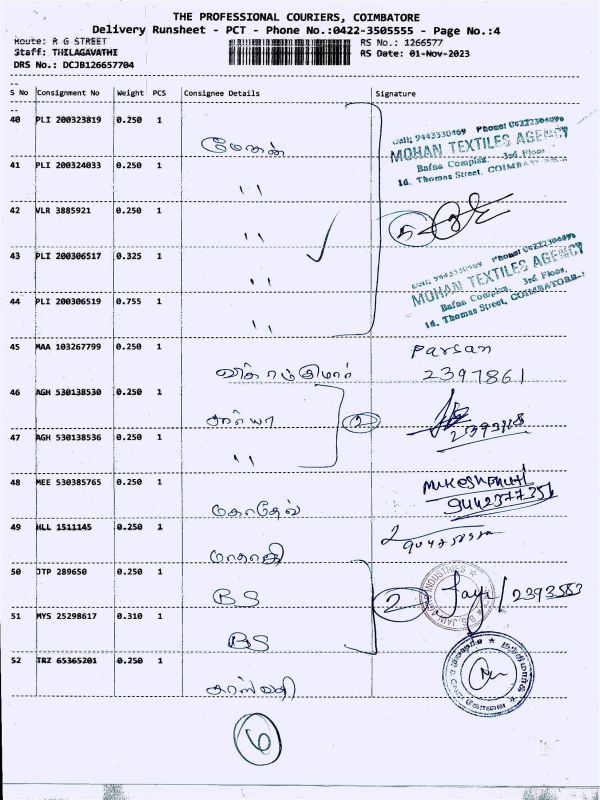 THE PROFESSIONAL COURIERS, COIMBATORE
Delivery Runsheet - PCT - Phone No.:0422-3505555 - Page No.:4
Route: R G STREET
RS No.: 1266577
Staff: THILAGAVATHI
RS Date: 01-Nov-2023
DRS No.: DCJB126657704
S No Consignment No Weight PCS Consignee Details Signature
40 PLI 200323819 0.250 1
மோகன்
Cell: 9443330469 Phone: 04222304096
MOHAN TEXTILES AGENCY
Bafna Complex, 3rd Floor,
1d. Thomas Street, COIMBATORE
41 PLI 200324033 0.250 1
"
42 VLR 3885921 0.250 1
"
5
43 PLI 200306517 0.325 1
"
MOHAN TEXTILES AGENCY
Bafna Complex, 3rd Floor,
1d. Thomas Street, COIMBATORE-
44 PLI 200306519 0.755 1
"
45 MAA 103267799 0.250 1
Parsan
2397861
46 AGH 530138530 0.250 1
2
47 AGH 530138536 0.250 1
"
48 MEE 530385765 0.250 1
மகாதேவ்
9442377351
49 HLL 1511145 0.250 1
50 JTP 289650 0.250 1
BS
2
2393553
51 MYS 25298617 0.310 1
BS
52 TRZ 65365201 0.250 1